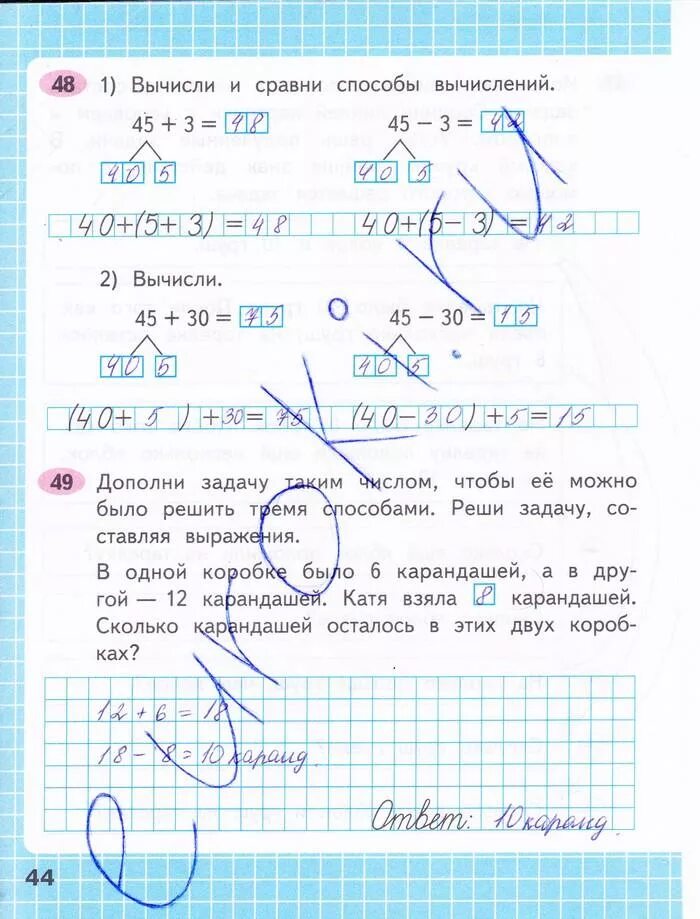 48 1) Вычисли и сравни способы вычислений.
45 + 3 = 48 45 − 3 = 42
40 5 40 5
40+(5+3)=48 40+(5−3)=42
2) Вычисли.
45 + 30 = 75 45 − 30 = 15
40 5 40 5
(40+5)+30=75 (40−30)+5=15
49 Дополни задачу таким числом, чтобы её можно
было решить тремя способами. Реши задачу, со-
ставляя выражения.
В одной коробке было 6 карандашей, а в дру-
гой — 12 карандашей. Катя взяла 8 карандашей.
Сколько карандашей осталось в этих двух короб-
ках?
12+6=18
18−8=10 каранд.
Ответ: 10 каранд.
44